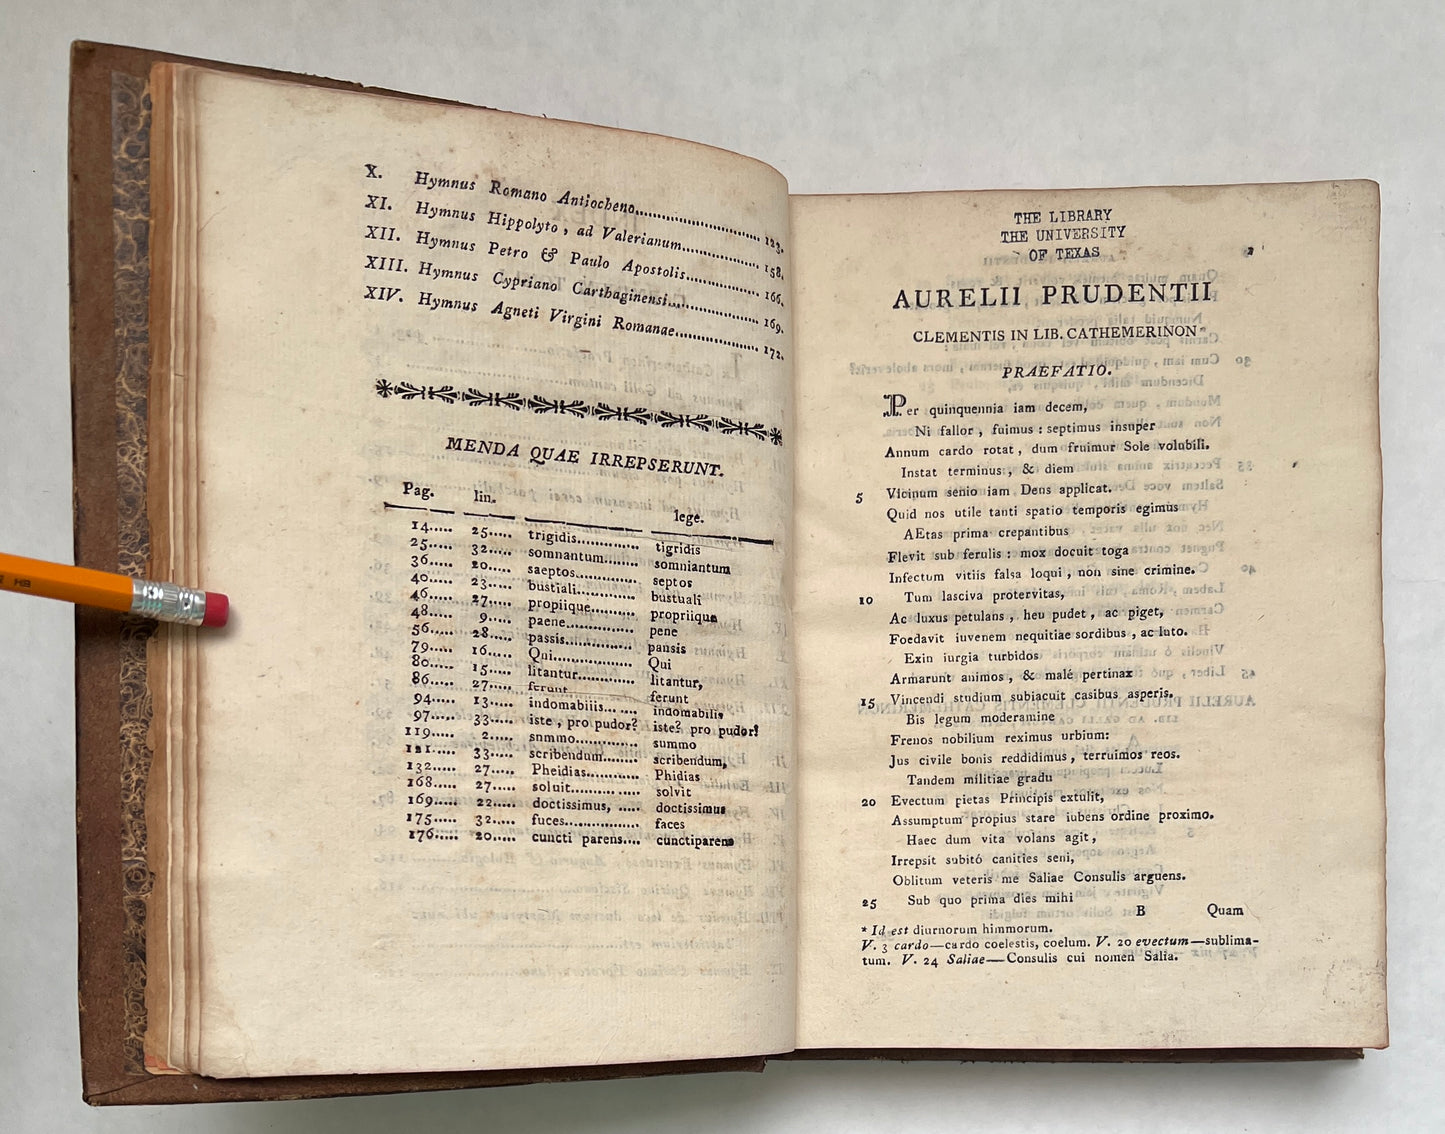 X. Hymnus Romano Antiocheno........................ 123.
XI. Hymnus Hippolyto, ad Valerianum............... 158.
XII. Hymnus Petro & Paulo Apostolis............... 166.
XIII. Hymnus Cypriano Carthaginensi............... 169.
XIV. Hymnus Agneti Virgini Romanae............... 172.
MENDA QUAE IRREPSERUNT.
Pag. lin. lege.
14..... 25..... trigidis.............. tigridis
25..... 32..... somnantum........ somniantum
36..... 20..... saeptos............ septos
40..... 23..... bustiali........... bustuali
46..... 27..... propiique.......... propriique
48..... 9..... paene............... pene
56..... 28..... passis............... pansis
79..... 16..... Qui................. Qui
80..... 15..... litantur............ litantur,
86..... 27..... ferunt ferunt
94..... 13..... indomabiiis... .... indomabilis
97..... 33..... iste, pro pudor? iste? pro pudor!
119..... 2..... snmmo.............. summo
121..... 33..... scribendum........ scribendum,
132..... 27..... Pheidias........... Phidias
168..... 27..... soluit.......... ..... solvit
169..... 22..... doctissimus, ..... doctissimus
175..... 32..... fuces................. faces
176..... 20..... cuncti parens.... cunctiparens
HB
THE LIBRARY
THE UNIVERSITY
OF TEXAS
AURELII PRUDENTII
CLEMENTIS IN LIB. CATHEMERINON*
PRAEFATIO.
Per quinquennia iam decem,
Ni fallor, fuimus: septimus insuper
Annum cardo rotat, dum fruimur Sole volubili.
Instat terminus, & diem
5 Vicinum senio iam Dens applicat.
Quid nos utile tanti spatio temporis egimus
AEtas prima crepantibus
Flevit sub ferulis: mox docuit toga
Infectum vitiis falsa loqui, non sine crimine.
10 Tum lasciva protervitas,
Ac luxus petulans, heu pudet, ac piget,
Foedavit iuvenem nequitiae sordibus, ac luto.
Exin iurgia turbidos
Armarunt animos, & malé pertinax
15 Vincendi studium subiacuit casibus asperis.
Bis legum moderamine
Frenos nobilium reximus urbium:
Jus civile bonis reddidimus, terruimos reos.
Tandem militiae gradu
20 Evectum pietas Principis extulit,
Assumptum propius stare iubens ordine proximo.
Haec dum vita volans agit,
Irrepsit subitó canities seni,
Oblitum veteris me Saliae Consulis arguens.
25 Sub quo prima dies mihi
B Quam
* Id est diurnorum himmorum.
V. 3 cardo—cardo coelestis, coelum. V. 20 evectum—sublima-
tum. V. 24 Saliae—Consulis cui nomen Salia.